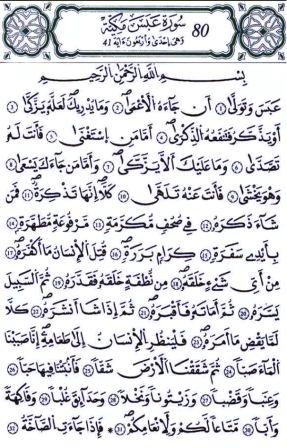 80 سُورَةُ عَبَسَ مَكِّيَّةٌ
وَهِيَ إِحْدَىٰ وَأَرْبَعُونَ ءَايَةً 41
بِسْمِ اللَّهِ الرَّحْمَٰنِ الرَّحِيمِ
عَبَسَ وَتَوَلَّىٰ 1 أَن جَآءَهُ الْأَعْمَىٰ 2 وَمَا يُدْرِيكَ لَعَلَّهُ يَزَّكَّىٰ 3
أَوْ يَذَّكَّرُ فَتَنفَعُهُ الذِّكْرَىٰ 4 أَمَّا مَنِ اسْتَغْنَىٰ 5 فَأَنتَ لَهُ
تَصَّدَّىٰ 6 وَمَا عَلَيْكَ أَلَّا يَزَّكَّىٰ 7 وَأَمَّا مَن جَآءَكَ يَسْعَىٰ 8
وَهُوَ يَخْشَىٰ 9 فَأَنتَ عَنْهُ تَلَهَّىٰ 10 كَلَّا إِنَّهَا تَذْكِرَةٌ 11 فَمَن
شَآءَ ذَكَرَهُ 12 فِي صُحُفٍ مُّكَرَّمَةٍ 13 مَّرْفُوعَةٍ مُّطَهَّرَةٍ 14
بِأَيْدِي سَفَرَةٍ 15 كِرَامٍ بَرَرَةٍ 16 قُتِلَ الْإِنسَانُ مَا أَكْفَرَهُ 17
مِنْ أَيِّ شَيْءٍ خَلَقَهُ 18 مِن نُّطْفَةٍ خَلَقَهُ فَقَدَّرَهُ 19 ثُمَّ السَّبِيلَ
يَسَّرَهُ 20 ثُمَّ أَمَاتَهُ فَأَقْبَرَهُ 21 ثُمَّ إِذَا شَا أَنشَرَهُ 22 كَلَّا
لَمَّا يَقْضِ مَا أَمَرَهُ 23 فَلْيَنظُرِ الْإِنسَانُ إِلَىٰ طَعَامِهِ إِنَّا صَبَبْنَا
الْمَآءَ صَبًّا 24 ثُمَّ شَقَقْنَا الْأَرْضَ شَقًّا 25 فَأَنبَتْنَا فِيهَا حَبًّا 26
وَعِنَبًا وَقَضْبًا 27 وَزَيْتُونًا وَنَخْلًا 28 وَحَدَآئِقَ غُلْبًا 29 وَفَاكِهَةً
وَأَبًّا 30 مَّتَاعًا لَّكُمْ وَلِأَنْعَامِكُمْ 31 فَإِذَا جَآءَتِ الصَّآخَّةُ 32